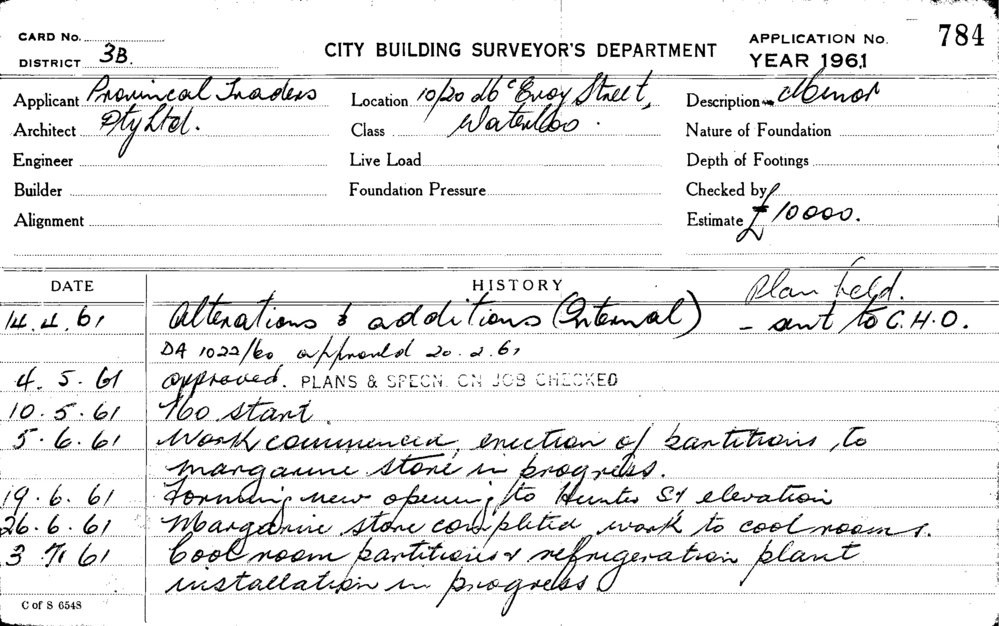 CARD No.
DISTRICT 3B.
CITY BUILDING SURVEYOR'S DEPARTMENT
APPLICATION No. 784
YEAR 1961
Applicant Provincial Traders
Location 10/20 Mc Evoy Street,
Description Minor
Architect Pty Ltd.
Class Waterloo.
Nature of Foundation
Engineer
Live Load
Depth of Footings
Builder
Foundation Pressure
Checked by
Alignment
Estimate £10000.
DATE
HISTORY
Plan held.
14.4.61 Alterations & additions (Internal) - sent to C.H.O.
DA 1022/60 approved 20.2.61
4.5.61 approved. PLANS & SPECN. ON JOB CHECKED
10.5.61 No start
5.6.61 Work commenced, erection of partitions, to
margarine store in progress.
19.6.61 Forming new opening to Hunter St elevation
26.6.61 Margarine store completed work to cool rooms.
3.7.61 Cool room partitions & refrigeration plant
installation in progress
C of S 6548